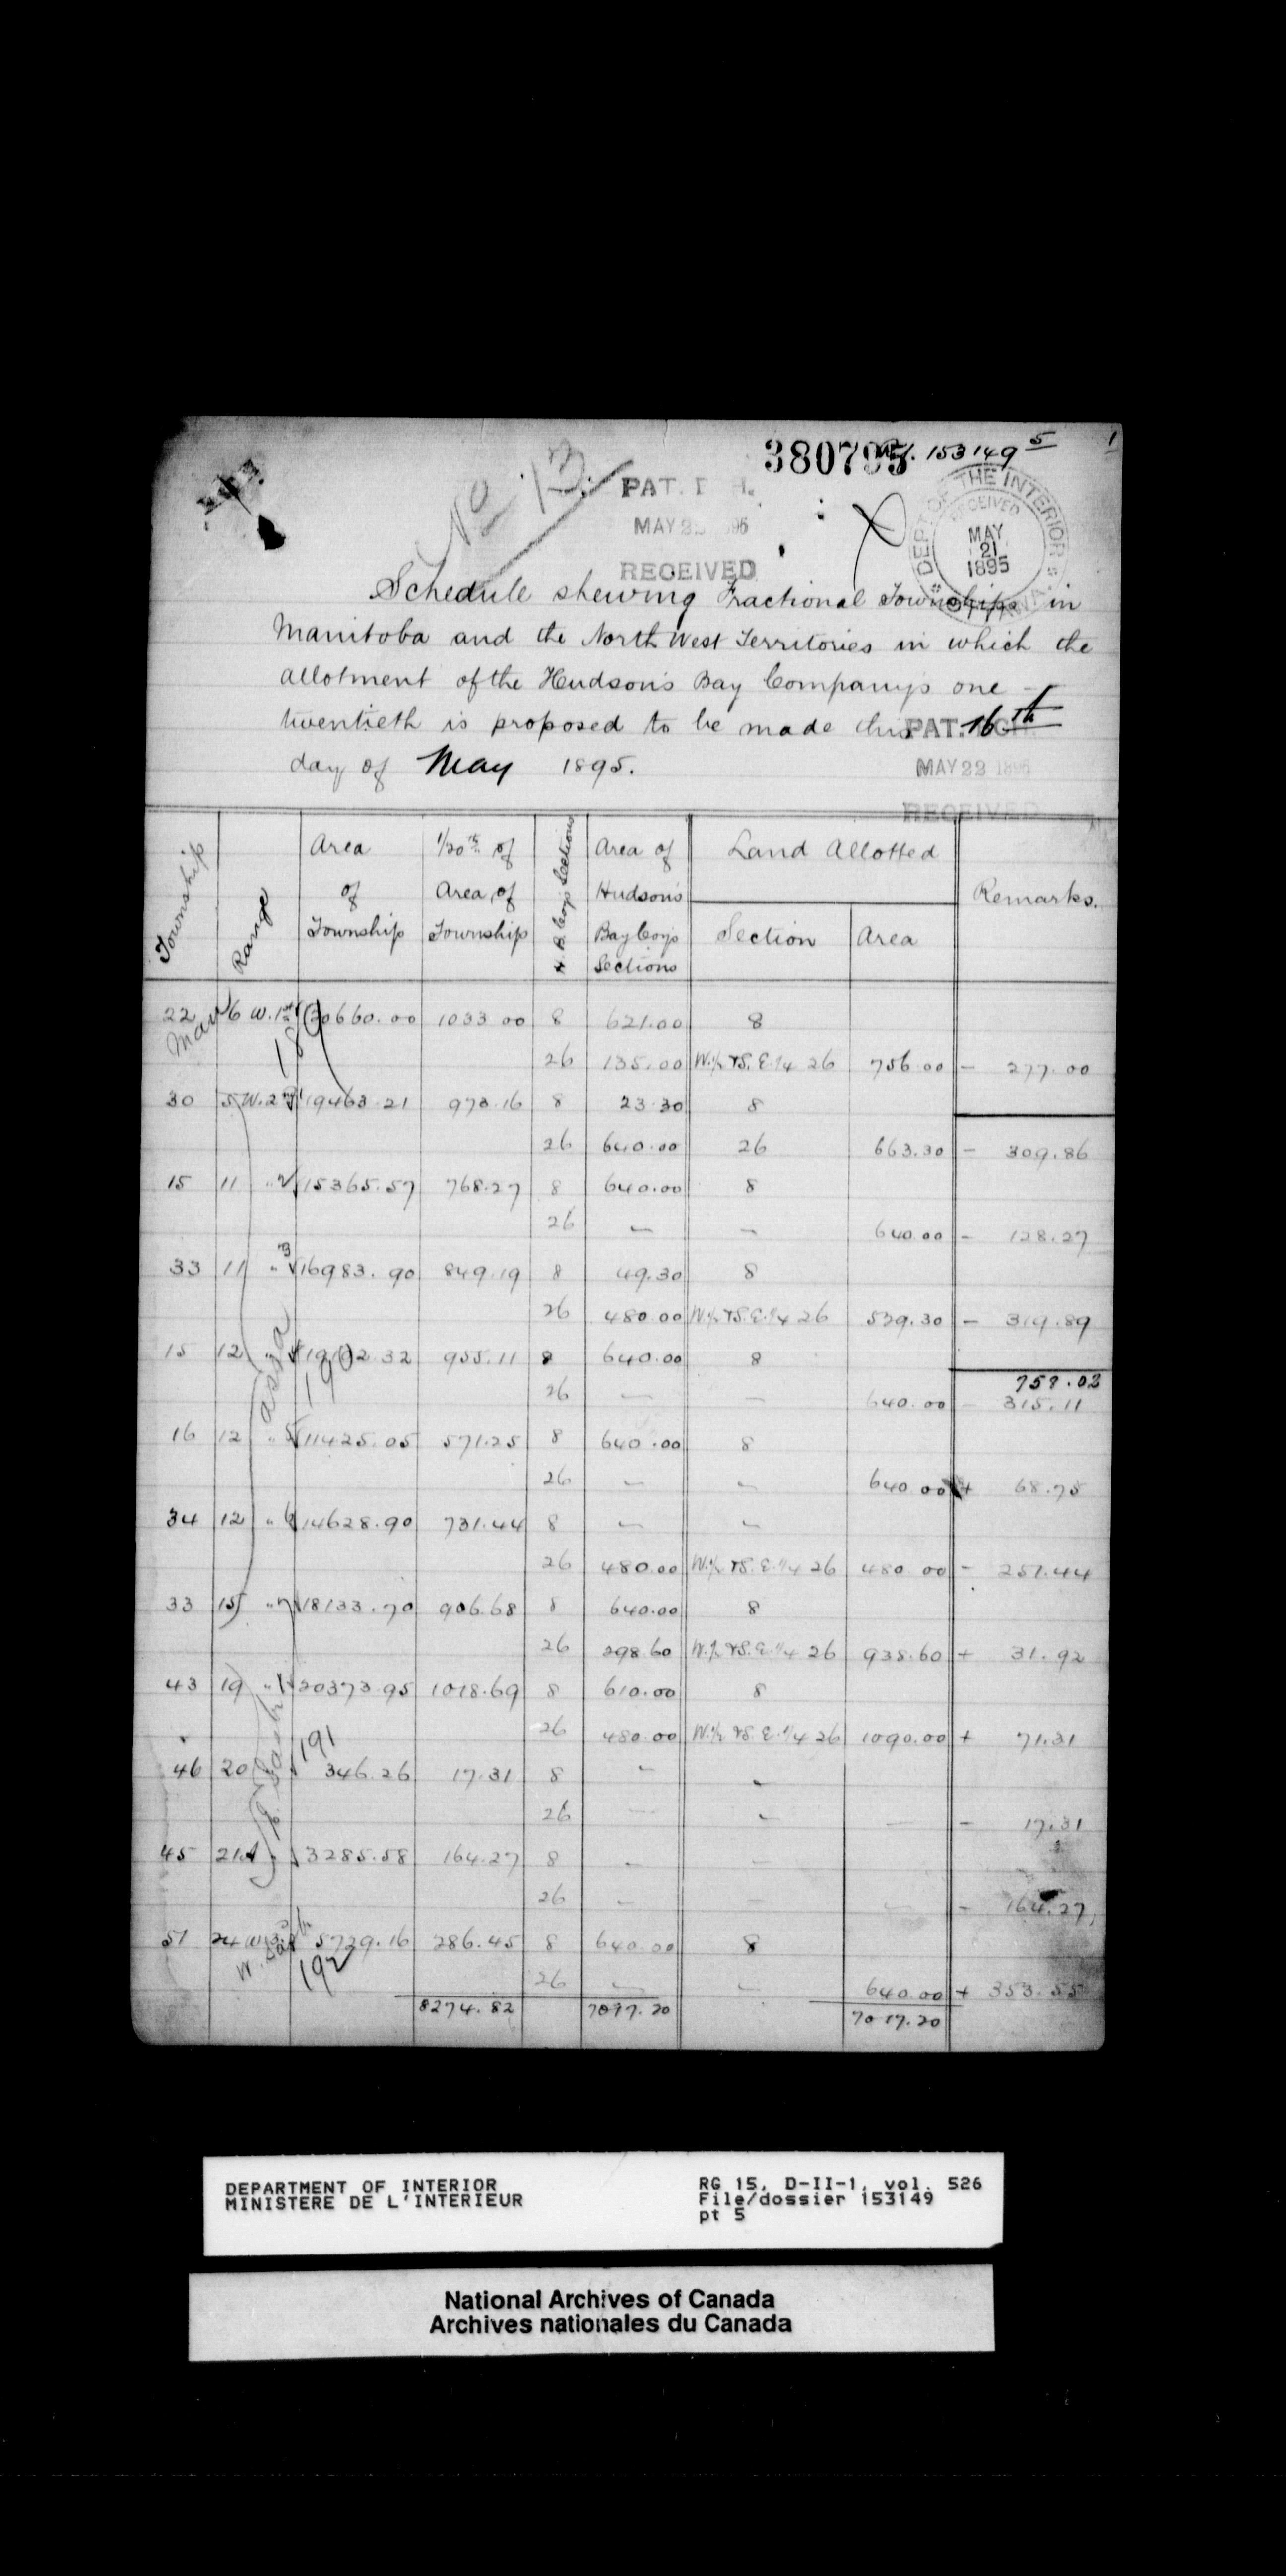 380795
Ref. 153149 5
1
No 13.
PAT. 
MAY 22
RECEIVED
DEPT OF THE INTERIOR
RECEIVED
MAY
21
1895
OTTAWA
Schedule shewing Fractional Townships in
Manitoba and the North West Territories in which the
allotment of the Hudson's Bay Company's one
twentieth is proposed to be made this 16th
day of May 1895.
PAT.
MAY 22 1895
RECEIVED
Township Range Area of Township 1/20th of Area of Township H. B. Coy's Sections Area of Hudson's Bay Coy's Sections Land Allotted Section Area Remarks.
22 6 W. 1st 20660.00 1033.00 8 621.00 8
Man 18
26 135.00 W.½ & S.E.¼ 26 756.00 - 277.00
30 5 W. 2nd 19463.21 973.16 8 23.30 8
26 640.00 26 663.30 - 309.86
15 11 " 2 15365.57 768.27 8 640.00 8
26 — — 640.00 - 128.27
33 11 " 3 16983.90 849.19 8 49.30 8
26 480.00 W.½ & S.E.¼ 26 529.30 - 319.89
15 12 " 4 19102.32 955.11 8 640.00 8
Assa 190
758.02
26 — — 640.00 - 315.11
16 12 " 5 11425.05 571.25 8 640.00 8
26 — — 640.00 + 68.75
34 12 " 6 14628.90 731.44 8 — —
26 480.00 W.½ & S.E.¼ 26 480.00 - 251.44
33 15 " 7 18133.70 906.68 8 640.00 8
26 298.60 W.½ & S.E.¼ 26 938.60 + 31.92
43 19 " 20373.95 1018.69 8 610.00 8
26 480.00 W.½ & S.E.¼ 26 1090.00 + 71.31
E. Sask 191
46 20 346.26 17.31 8 — —
26 — — — - 17.31
45 21A " 3285.58 164.27 8 — —
26 — — — - 164.27
51 24 W. 3 5729.16 286.45 8 640.00 8
W. Sask 192
26 — — 640.00 + 353.55
8274.82 7017.20 7017.20
DEPARTMENT OF INTERIOR
MINISTERE DE L'INTERIEUR
RG 15, D-II-1, vol. 526
File/dossier 153149
pt 5
National Archives of Canada
Archives nationales du Canada